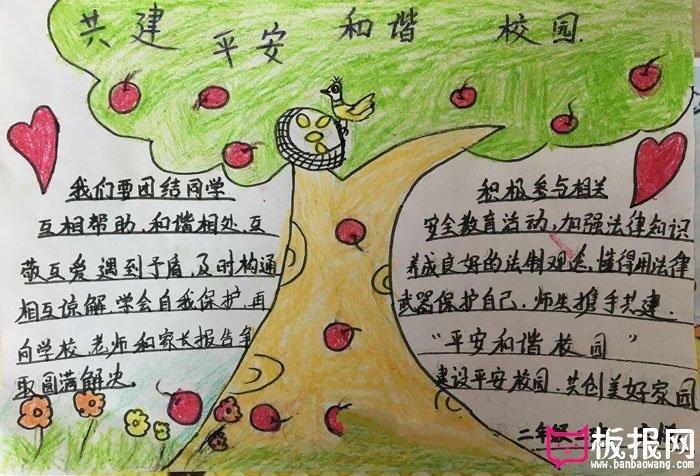 共建 平安 和谐 校园.
我们要团结同学
互相帮助,和谐相处、互
敬互爱.遇到矛盾,及时沟通
相互谅解.学会自我保护.再
向学校、老师和家长报告争
取圆满解决.
积极参与相关
安全教育活动,加强法律知识
养成良好的法制观念,懂得用法律
武器保护自己.师生携手共建.
“平安和谐校园”
建设平安校园.共创美好家园
二年级
板报网
www.banbaowang.com